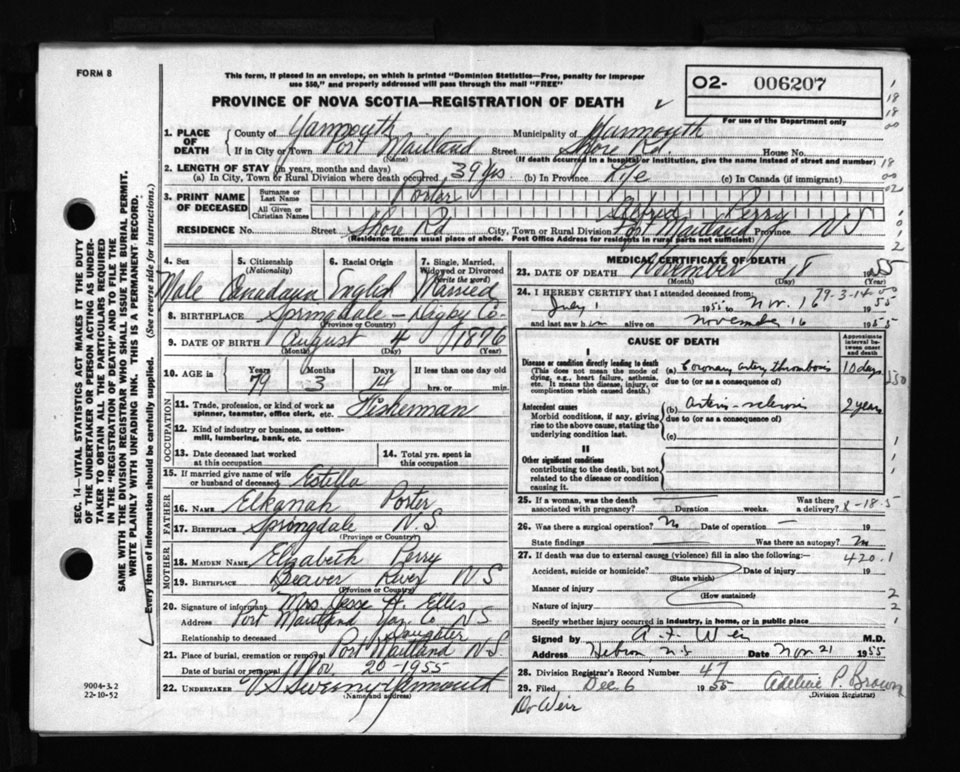 FORM 8
This form, if placed in an envelope, on which is printed "Dominion Statistics—Free, penalty for improper
use $50," and properly addressed will pass through the mail "FREE"
O2- 006207
For use of the Department only
PROVINCE OF NOVA SCOTIA—REGISTRATION OF DEATH
1. PLACE OF DEATH
County of Yarmouth Municipality of Yarmouth
If in City or Town Port Maitland Street Shore Rd. House No.
(Name) (If death occurred in a hospital or institution, give the name instead of street and number)
2. LENGTH OF STAY (in years, months and days)
(a) In City, Town or Rural Division where death occurred 39 yrs (b) In Province Life (c) In Canada (if immigrant)
3. PRINT NAME OF DECEASED
Surname or Last Name Porter
All Given or Christian Names Alfred Perry
RESIDENCE No. Street Shore Rd City, Town or Rural Division Port Maitland Province NS
(Residence means usual place of abode. Post Office Address for residents in rural parts not sufficient)
4. Sex 5. Citizenship (Nationality) 6. Racial Origin 7. Single, Married, Widowed or Divorced (write the word)
Male Canadian English Married
8. BIRTHPLACE Springdale – Digby Co-
(Province or Country)
9. DATE OF BIRTH August 4 1876
(Month) (Day) (Year)
10. AGE in Years Months Days If less than one day
79 3 14 hrs. or min.
OCCUPATION
11. Trade, profession, or kind of work as spinner, teamster, office clerk, etc. Fisherman
12. Kind of industry or business, as cotton-mill, lumbering, bank, etc.
13. Date deceased last worked at this occupation 14. Total yrs. spent in this occupation
15. If married give name of wife or husband of deceased Estella
FATHER
16. NAME Elkanah Porter
17. BIRTHPLACE Springdale N.S
(Province or Country)
MOTHER
18. MAIDEN NAME Elizabeth Perry
19. BIRTHPLACE Beaver River NS
(Province or Country)
20. Signature of informant Mrs. Jesse H. Ellis
Address Port Maitland Yar. Co NS
Relationship to deceased Daughter
21. Place of burial, cremation or removal Port Maitland NS
Date of burial or removal Nov 20-1955
22. UNDERTAKER V S Sweeny Yarmouth
(Name and address)
MEDICAL CERTIFICATE OF DEATH
23. DATE OF DEATH November 18 1955
(Month) (Day) (Year)
79-3-14
24. I HEREBY CERTIFY that I attended deceased from
July 1 1955 to Nov. 16 1955
and last saw him alive on November 16 1955
CAUSE OF DEATH
Approximate interval between onset and death
I
Disease or condition directly leading to death
(This does not mean the mode of dying, e.g., heart failure, asthenia, etc. It means the disease, injury, or complication which caused death.)
(a) Coronary artery thrombosis 10 days
due to (or as a consequence of)
Antecedent causes
Morbid conditions, if any, giving rise to the above cause, stating the underlying condition last.
(b) Arterio-sclerosis 2 years
due to (or as a consequence of)
(c)
II
Other significant conditions
contributing to the death, but not related to the disease or condition causing it.
25. If a woman, was the death associated with pregnancy? Duration weeks. Was there a delivery?
26. Was there a surgical operation? No Date of operation – 19
State findings Was there an autopsy? No
27. If death was due to external causes (violence) fill in also the following:- 420.1
Accident, suicide or homicide? Date of injury 19
(State which)
Manner of injury
(How sustained)
Nature of injury
Specify whether injury occurred in industry, in home, or in public place
Signed by A. F. Weir M.D.
Address Hebron N.S Date Nov 21 1955
28. Division Registrar's Record Number 47
29. Filed Dec 6 1955 Adeline P. Brown
(Division Registrar)
Dr Weir
SEC. 14—VITAL STATISTICS ACT MAKES IT THE DUTY
OF THE UNDERTAKER OR PERSON ACTING AS UNDER-
TAKER TO OBTAIN ALL THE PARTICULARS REQUIRED
IN THE "REGISTRATION OF DEATH" AND TO FILE THE
SAME WITH THE DIVISION REGISTRAR WHO SHALL ISSUE THE BURIAL PERMIT.
WRITE PLAINLY WITH UNFADING INK. THIS IS A PERMANENT RECORD.
Every item of information should be carefully supplied. (See reverse side for instructions.)
9004-3.2
22-10-52